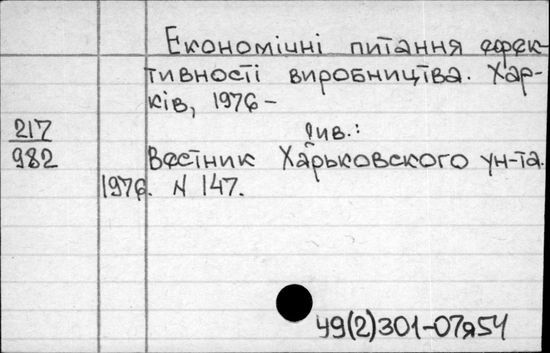 Економічні питання ефек-
тивності виробництва. Хар-
ків, 1976 -
217
982
Див.:
Вестник Харьковского ун-та.
1976. N 147.
У9(2)301-07я54